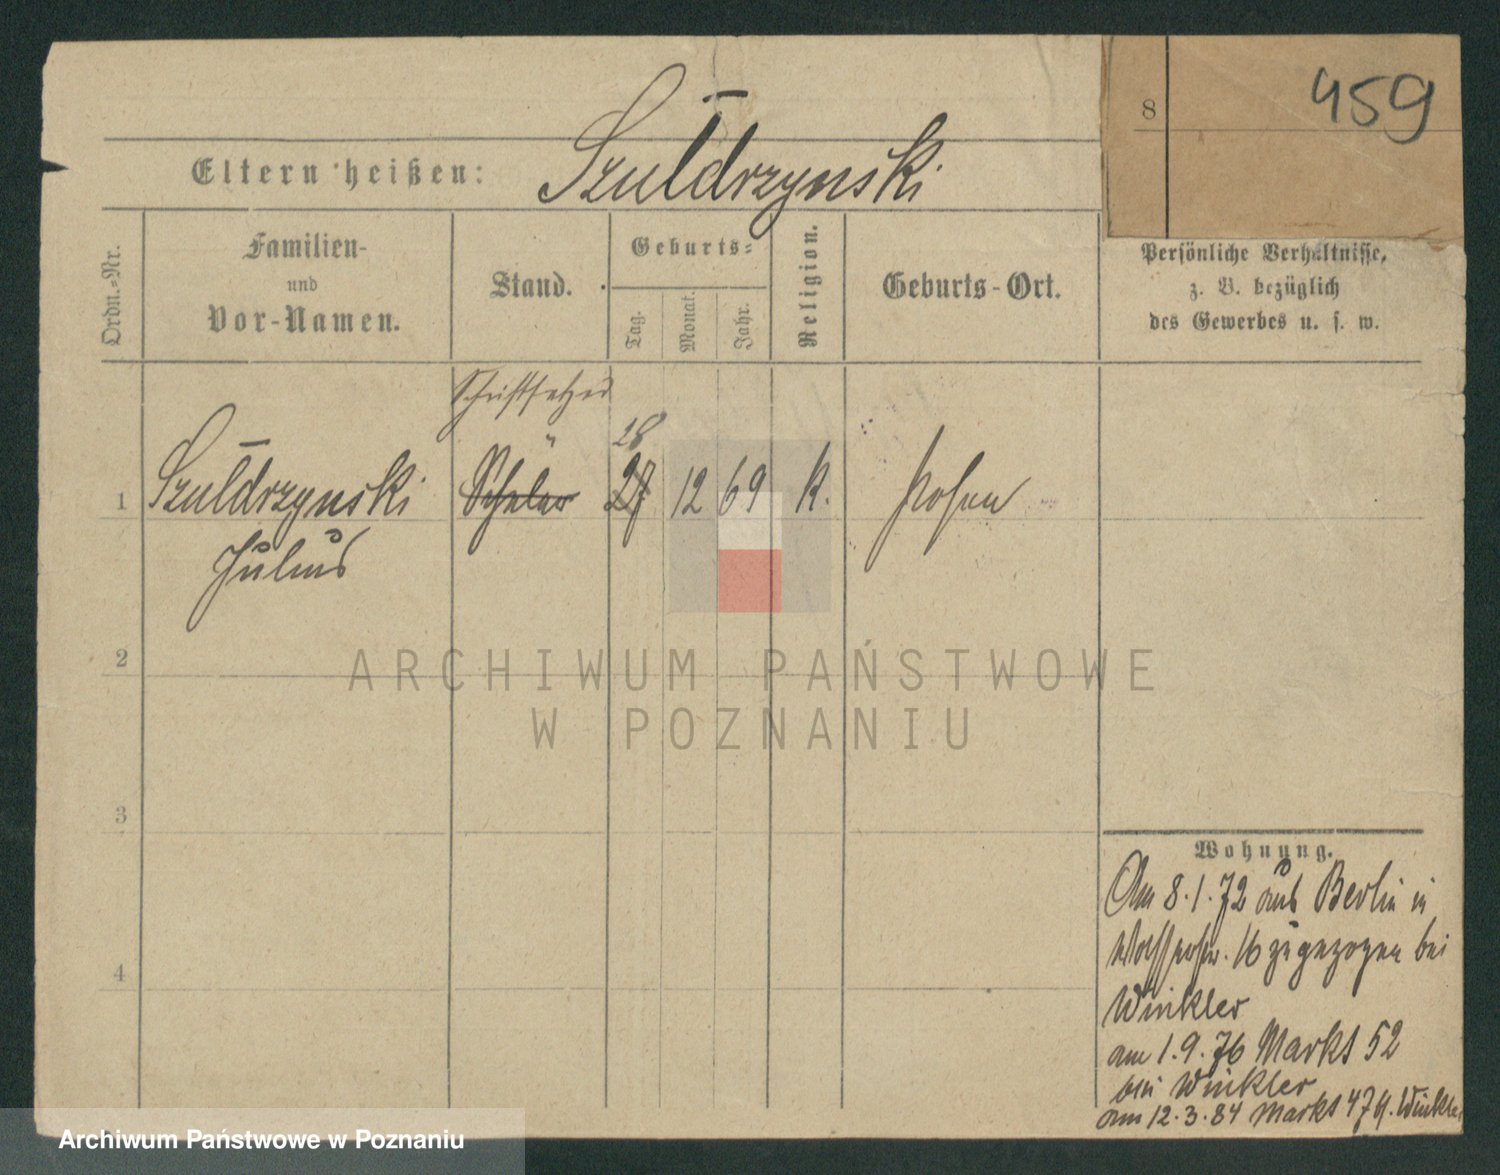 8
459
Eltern heißen: Szułdrzynski
Ordn.-Nr.
Familien-
und
Vor-Namen.
Stand.
Geburts-
Tag.
Monat.
Jahr.
Religion.
Geburts-Ort.
Persönliche Verhältnisse,
z. B. bezüglich
des Gewerbes u. s. w.
Schriftsetzer
28
1 Szułdrzynski Schüler 27 12 69 k. Posen
Julius
2
3
4
Wohnung.
Am 8.1.72 aus Berlin in
Wasserstr. 16 zugezogen bei
Winkler
am 1.9.76 Markt 52
bei Winkler
am 12.3.84 Markt 47 Winkler
ARCHIWUM PAŃSTWOWE
W POZNANIU
Archiwum Państwowe w Poznaniu